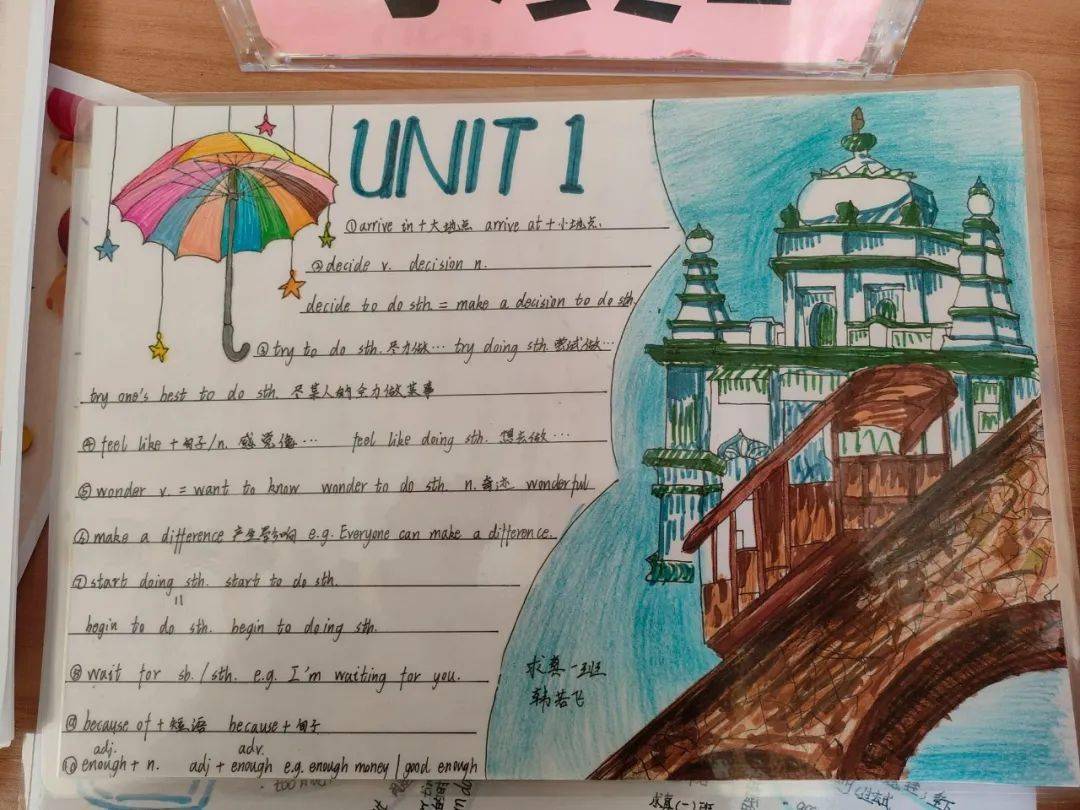 UNIT 1
①arrive in + 大地点 arrive at + 小地点.
②decide v. decision n.
decide to do sth. = make a decision to do sth.
③try to do sth. 尽力做… try doing sth. 尝试做…
try one's best to do sth. 尽某人的全力做某事
④feel like + 句子/n. 感觉像… feel like doing sth. 想去做…
⑤wonder v. = want to know wonder to do sth. n. 奇迹 wonderful
⑥make a difference 产生影响 e.g. Everyone can make a difference.
⑦start doing sth. start to do sth.
=
begin to do sth. begin to doing sth.
⑧wait for sb. / sth. e.g. I'm waiting for you.
⑨because of + 短语 because + 句子
adj. adv.
⑩enough + n. adj + enough e.g. enough money / good enough
求真一班
韩若飞
求真(二)班